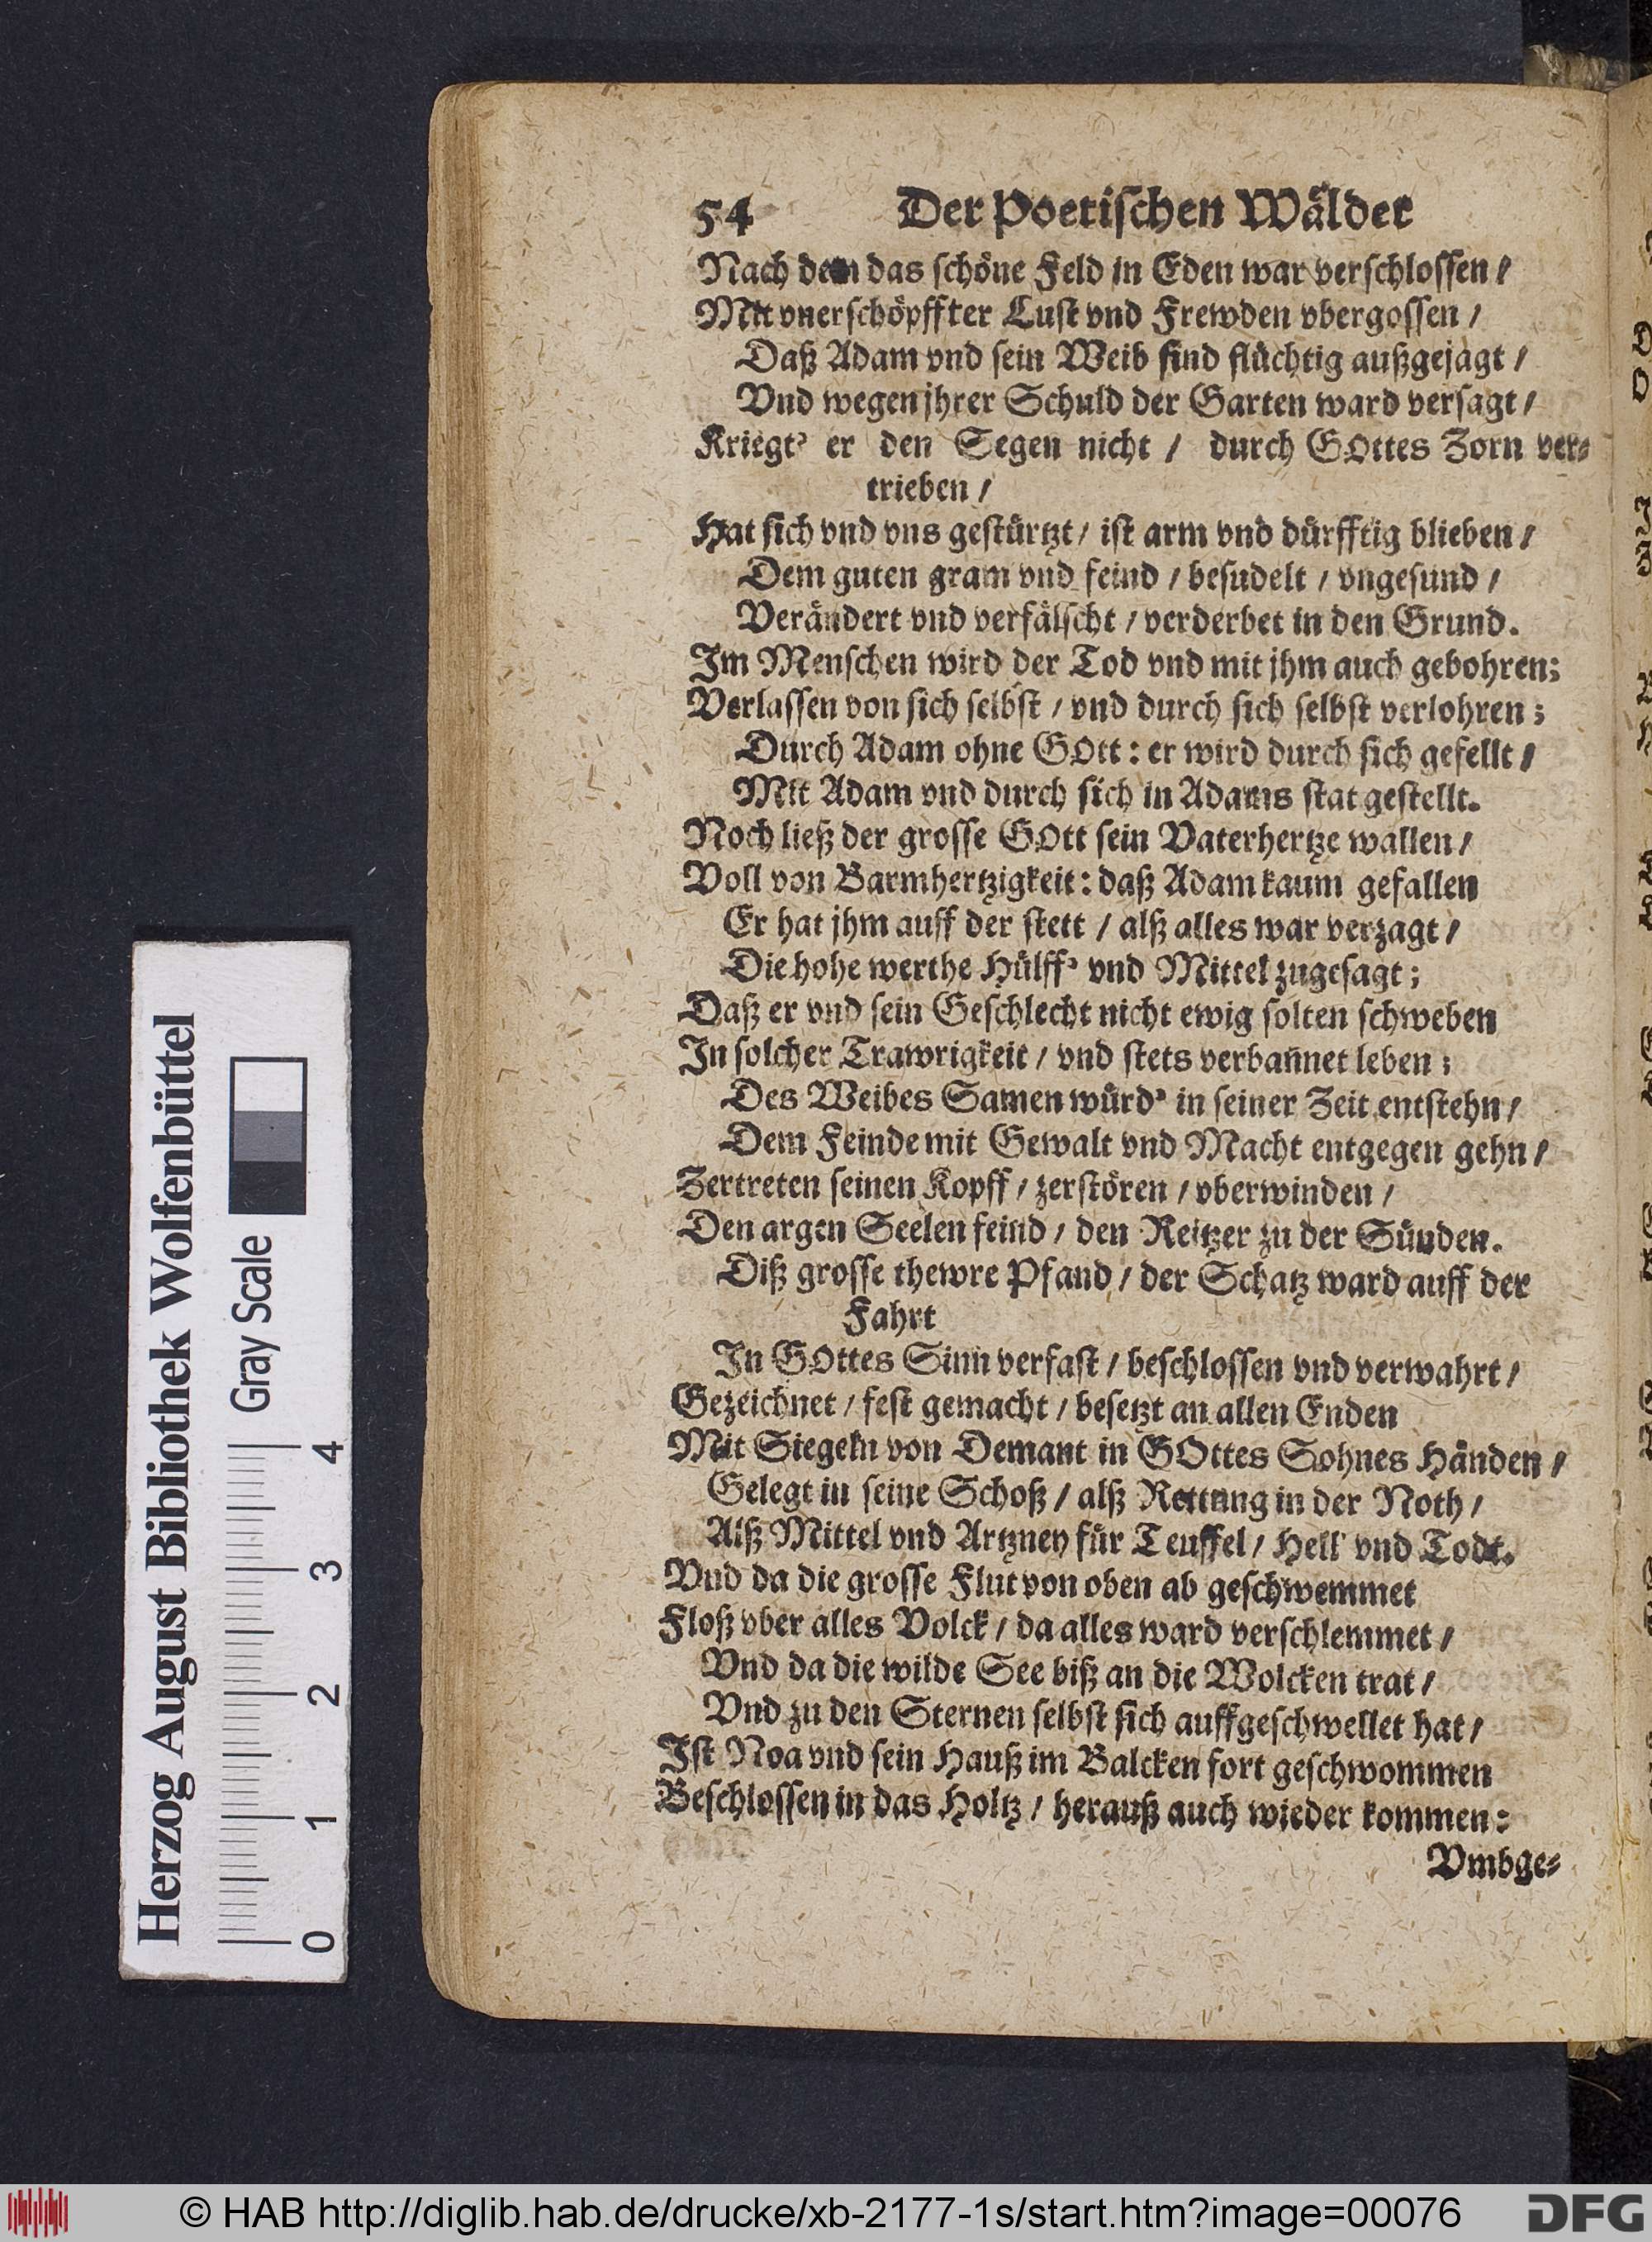 54 Der Poetischen Wälder
Nach dem das schöne Feld in Eden war verschlossen /
Mit vnerschöpffter Lust vnd Frewden vbergossen /
Daß Adam vnd sein Weib sind flüchtig außgejagt /
Vnd wegen jhrer Schuld der Garten ward versagt /
Kriegt' er den Segen nicht / durch GOttes Zorn ver-
trieben /
Hat sich vnd vns gestürtzt / ist arm vnd dürfftig blieben /
Dem guten gram vnd feind / besudelt / vngesund /
Verändert vnd verfälscht / verderbet in den Grund.
Im Menschen wird der Tod vnd mit jhm auch gebohren;
Verlassen von sich selbst / vnd durch sich selbst verlohren;
Durch Adam ohne GOtt: er wird durch sich gefellt /
Mit Adam vnd durch sich in Adams stat gestellt.
Noch ließ der grosse GOtt sein Vaterhertze wallen /
Voll von Barmhertzigkeit: daß Adam kaum gefallen
Er hat jhm auff der stett / alß alles war verzagt /
Die hohe werthe Hülff' vnd Mittel zugesagt;
Daß er vnd sein Geschlecht nicht ewig solten schweben
In solcher Trawrigkeit / vnd stets verban̄et leben;
Des Weibes Samen würd' in seiner Zeit entstehn /
Dem Feinde mit Gewalt vnd Macht entgegen gehn /
Zertreten seinen Kopff / zerstören / vberwinden /
Den argen Seelen feind / den Reitzer zu der Sünden.
Diß grosse thewre Pfand / der Schatz ward auff der
Fahrt
In GOttes Sinn verfast / beschlossen vnd verwahrt /
Gezeichnet / fest gemacht / besetzt an allen Enden
Mit Siegeln von Demant in GOttes Sohnes Händen /
Gelegt in seine Schoß / alß Rettung in der Noth /
Alß Mittel vnd Artzney für Teuffel / Hell' vnd Todt.
Vnd da die grosse Flut von oben ab geschwemmet
Floß vber alles Volck / da alles ward verschlemmet /
Vnd da die wilde See biß an die Wolcken trat /
Vnd zu den Sternen selbst sich auffgeschwellet hat /
Ist Noa vnd sein Hauß im Balcken fort geschwommen
Beschlossen in das Holtz / herauß auch wieder kommen:
Vmbge-
Herzog August Bibliothek Wolfenbüttel
Gray Scale
0 1 2 3 4
© HAB http://diglib.hab.de/drucke/xb-2177-1s/start.htm?image=00076
DFG